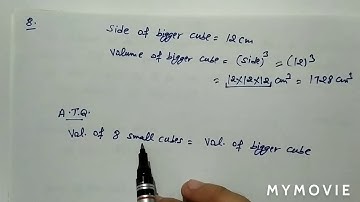 8.
Side of bigger cube = 12 cm
Volume of bigger cube = (side)³ = (12)³
= 12×12×12 cm³ = 1728 cm³
A.T.Q.
Vol. of 8 small cubes = Vol. of bigger cube
MYMOVIE